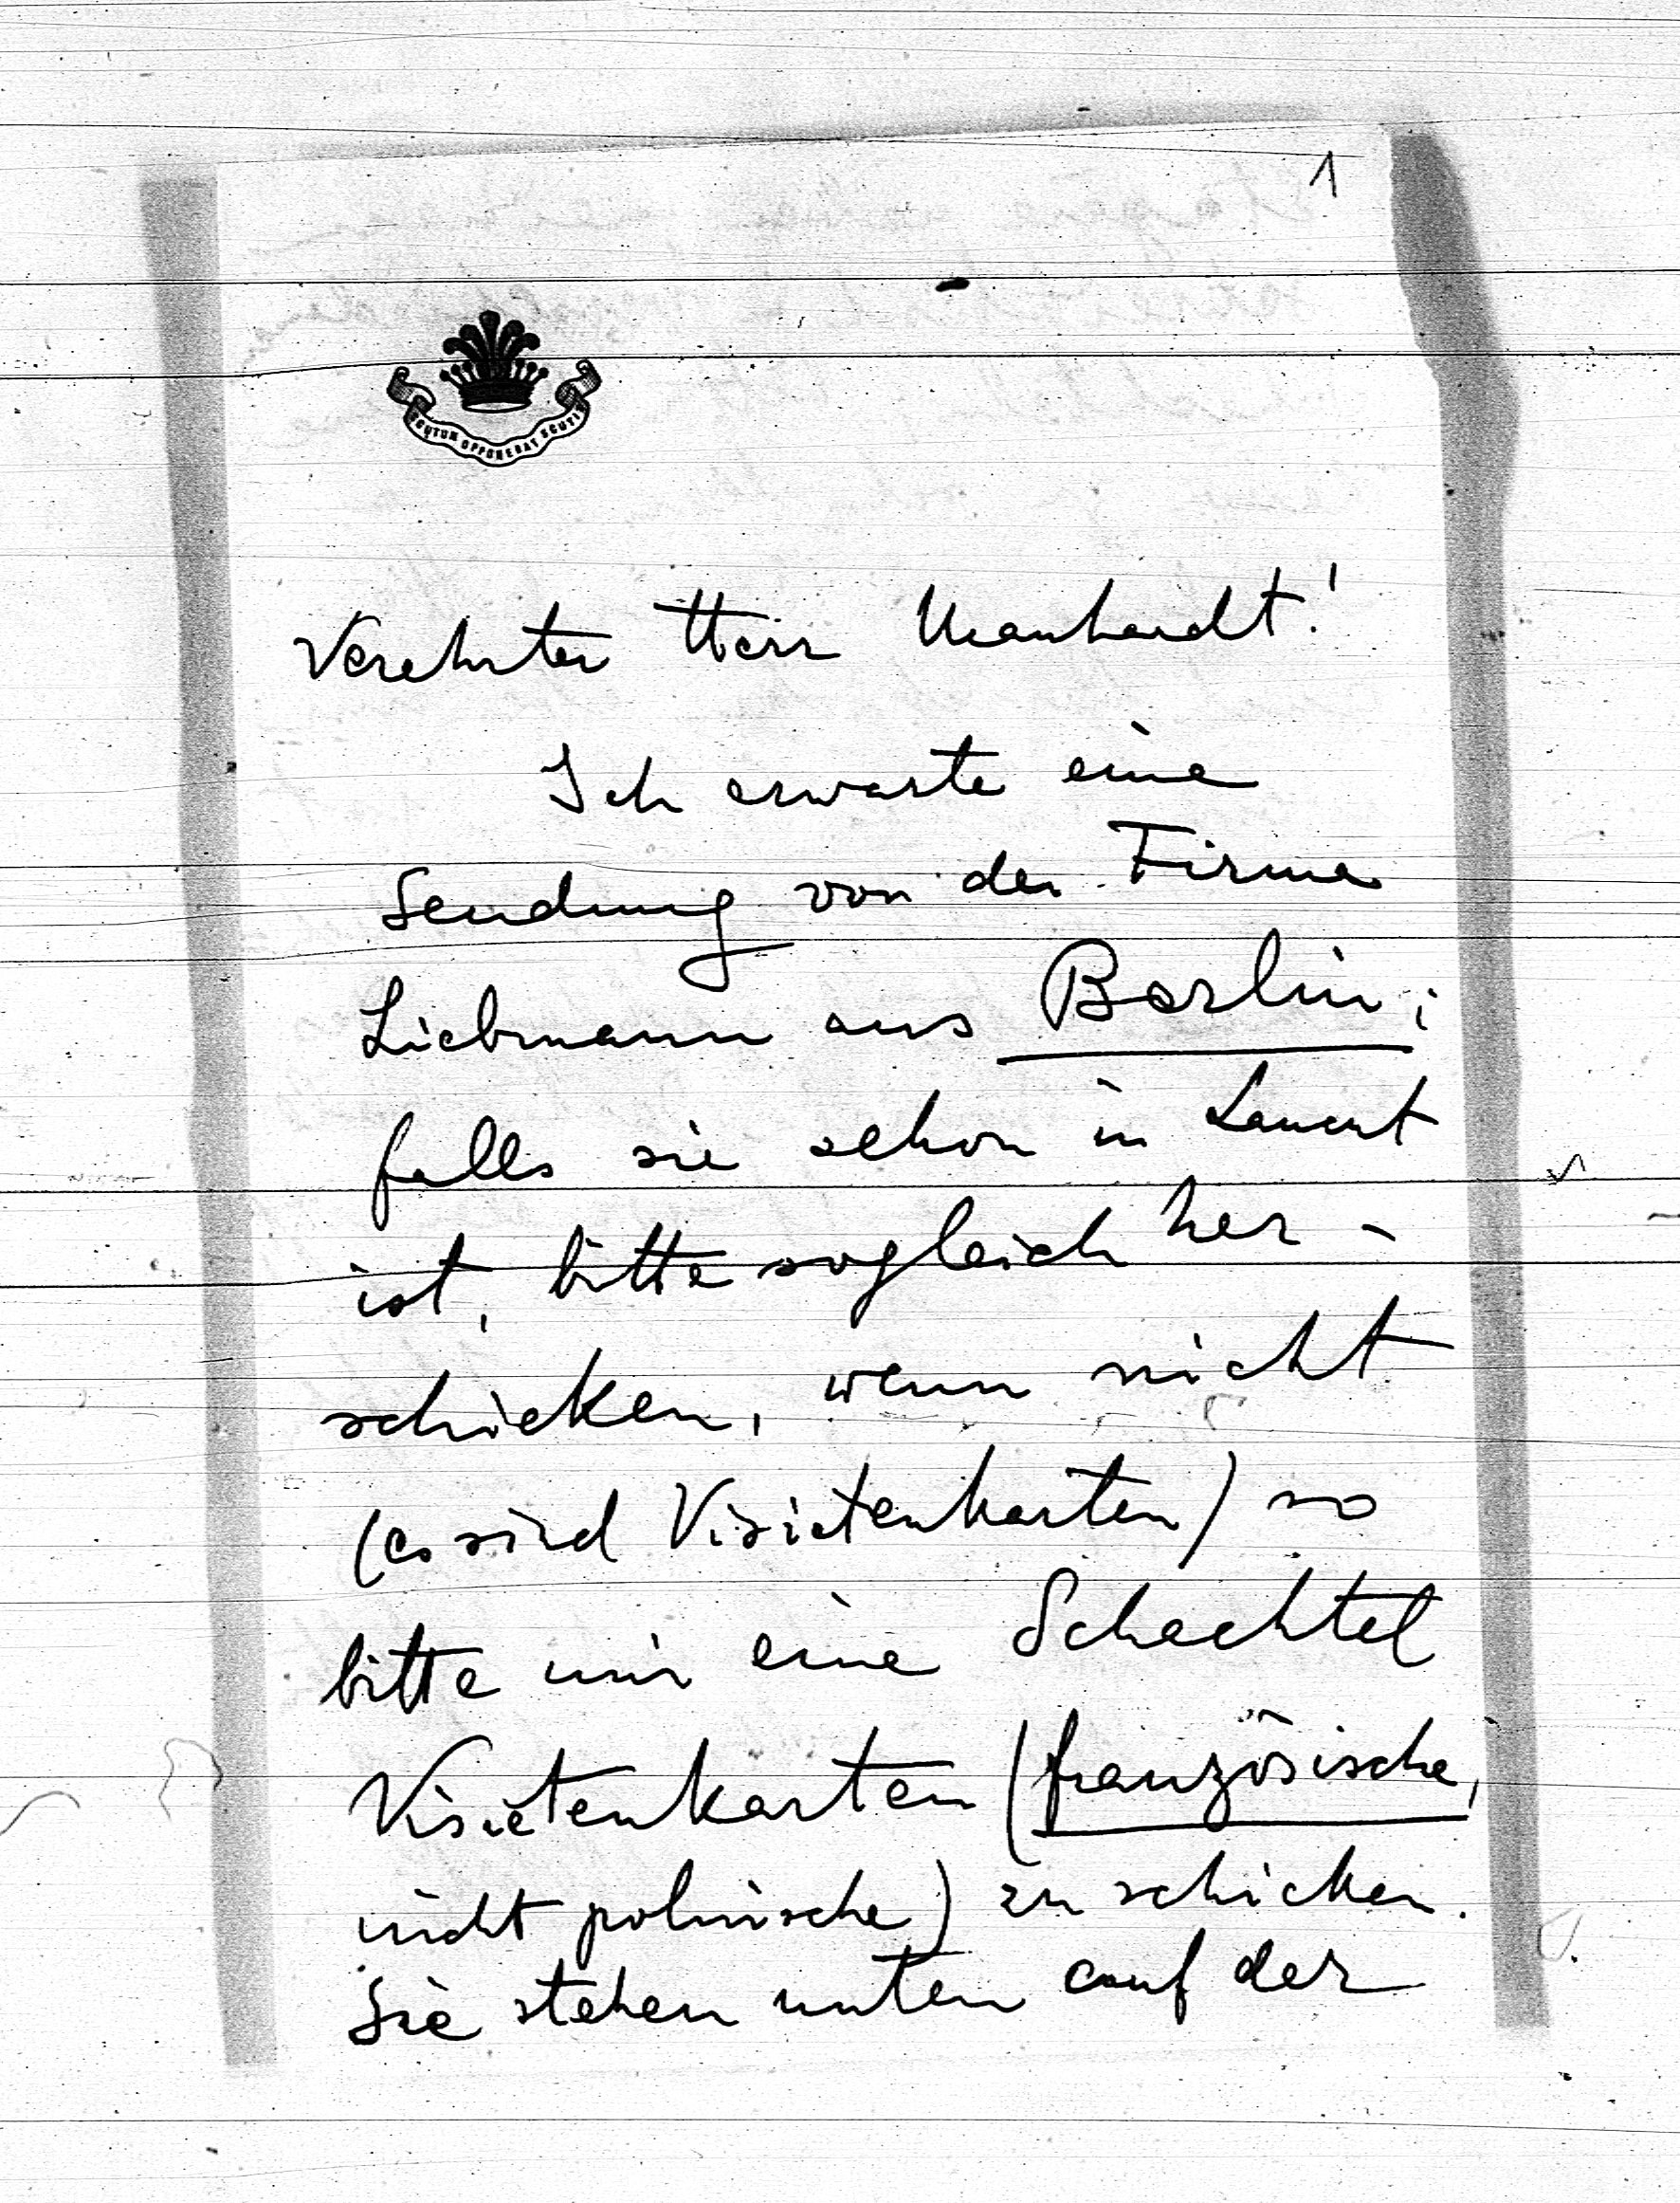 1
SCUTUM OPPONEBAT SCUTIS
Verehrter Herr Manhardt!
Ich erwarte eine
Sendung von der Firma
Liebmann aus Berlin;
falls sie schon in Lancut
ist, bitte sogleich her-
schicken, wenn nicht
(es sind Visietenkarten) so
bitte mir eine Schachtel
Visietenkarten (französische,
nicht polnische) zu schicken.
Sie stehen unten auf der